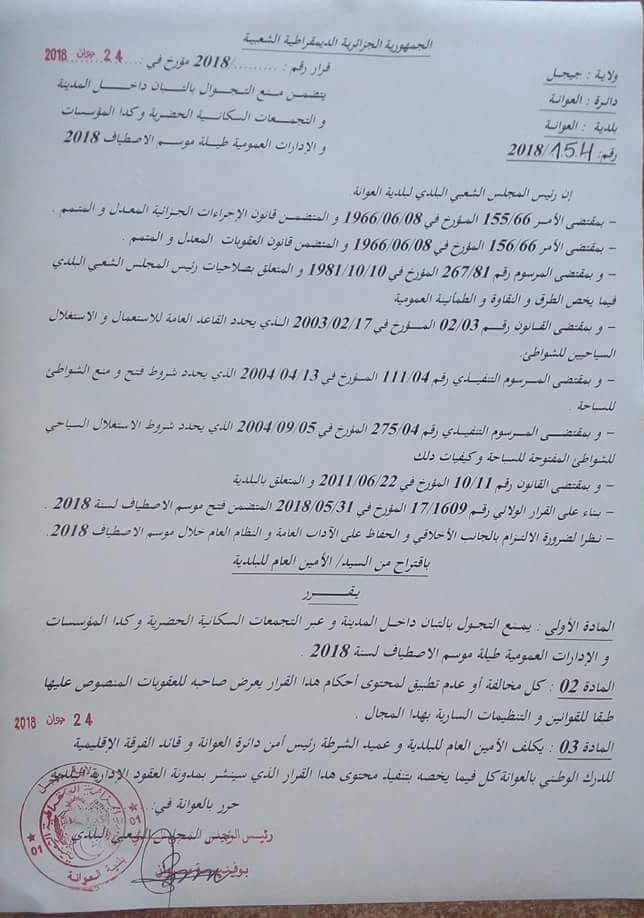 الجمهورية الجزائرية الديمقراطية الشعبية
ولاية : جيجل
دائرة : العوانة
بلدية : العوانة
رقم: 154/2018
قرار رقم : ........../2018 مؤرخ في : 24 جوان 2018
يتضمن منع التجوال بالتبان داخل المدينة
و التجمعات السكانية الحضرية و كدا المؤسسات
و الإدارات العمومية طيلة موسم الاصطياف 2018
إن رئيس المجلس الشعبي البلدي لبلدية العوانة
– بمقتضى الأمر 155/66 المؤرخ في 1966/06/08 و المتضمن قانون الإجراءات الجزائية المعدل و المتمم .
– بمقتضى الأمر 156/66 المؤرخ في 1966/06/08 و المتضمن قانون العقوبات المعدل و المتمم .
– و بمقتضى المرسوم رقم 267/81 المؤرخ في 1981/10/10 و المتعلق بصلاحيات رئيس المجلس الشعبي البلدي
فيما يخص الطرق و النقاوة و الطمأنينة العمومية
– و بمقتضى القانون رقم 02/03 المؤرخ في 2003/02/17 الذي يحدد القاعد العامة للاستعمال و الاستغلال
السياحيين للشواطئ.
– و بمقتضى المرسوم التنفيذي رقم 111/04 المؤرخ في 2004/04/13 الذي يحدد شروط فتح و منع الشواطئ
للسباحة .
– و بمقتضى المرسوم التنفيذي رقم 275/04 المؤرخ في 2004/09/05 الذي يحدد شروط الاستغلال السياحي
للشواطئ المفتوحة للسباحة و كيفيات دلك
– و بمقتضى القانون رقم 10/11 المؤرخ في 2011/06/22 و المتعلق بالبلدية
– بناء على القرار الولائي رقم 17/1609 المؤرخ في 2018/05/31 المتضمن فتح موسم الاصطياف لسنة 2018 .
– نظرا لضرورة الالتزام بالجانب الأخلاقي و الحفاظ على الآداب العامة و النظام العام خلال موسم الاصطياف 2018.
باقتراح من السيد/ الأمين العام للبلدية
يقرر
المادة الأولى : يمنع التجول بالتبان داخل المدينة و عبر التجمعات السكانية الحضرية و كدا المؤسسات
و الإدارات العمومية طيلة موسم الاصطياف لسنة 2018 .
المادة 02 : كل مخالفة أو عدم تطبيق لمحتوى أحكام هدا القرار يعرض صاحبه للعقوبات المنصوص عليها
طبقا للقوانين و التنظيمات السارية بهدا المجال .
24 جوان 2018
المادة 03 : يكلف الأمين العام للبلدية و عميد الشرطة رئيس أمن دائرة العوانة و قائد الفرقة الإقليمية
للدرك الوطني بالعوانة كل فيما يخصه بتنفيذ محتوى هدا القرار الذي سينشر بمدونة العقود الإدارية للبلدية
حرر بالعوانة في:
رئيس المجلس الشعبي البلدي
بلدية العوانة
01
01